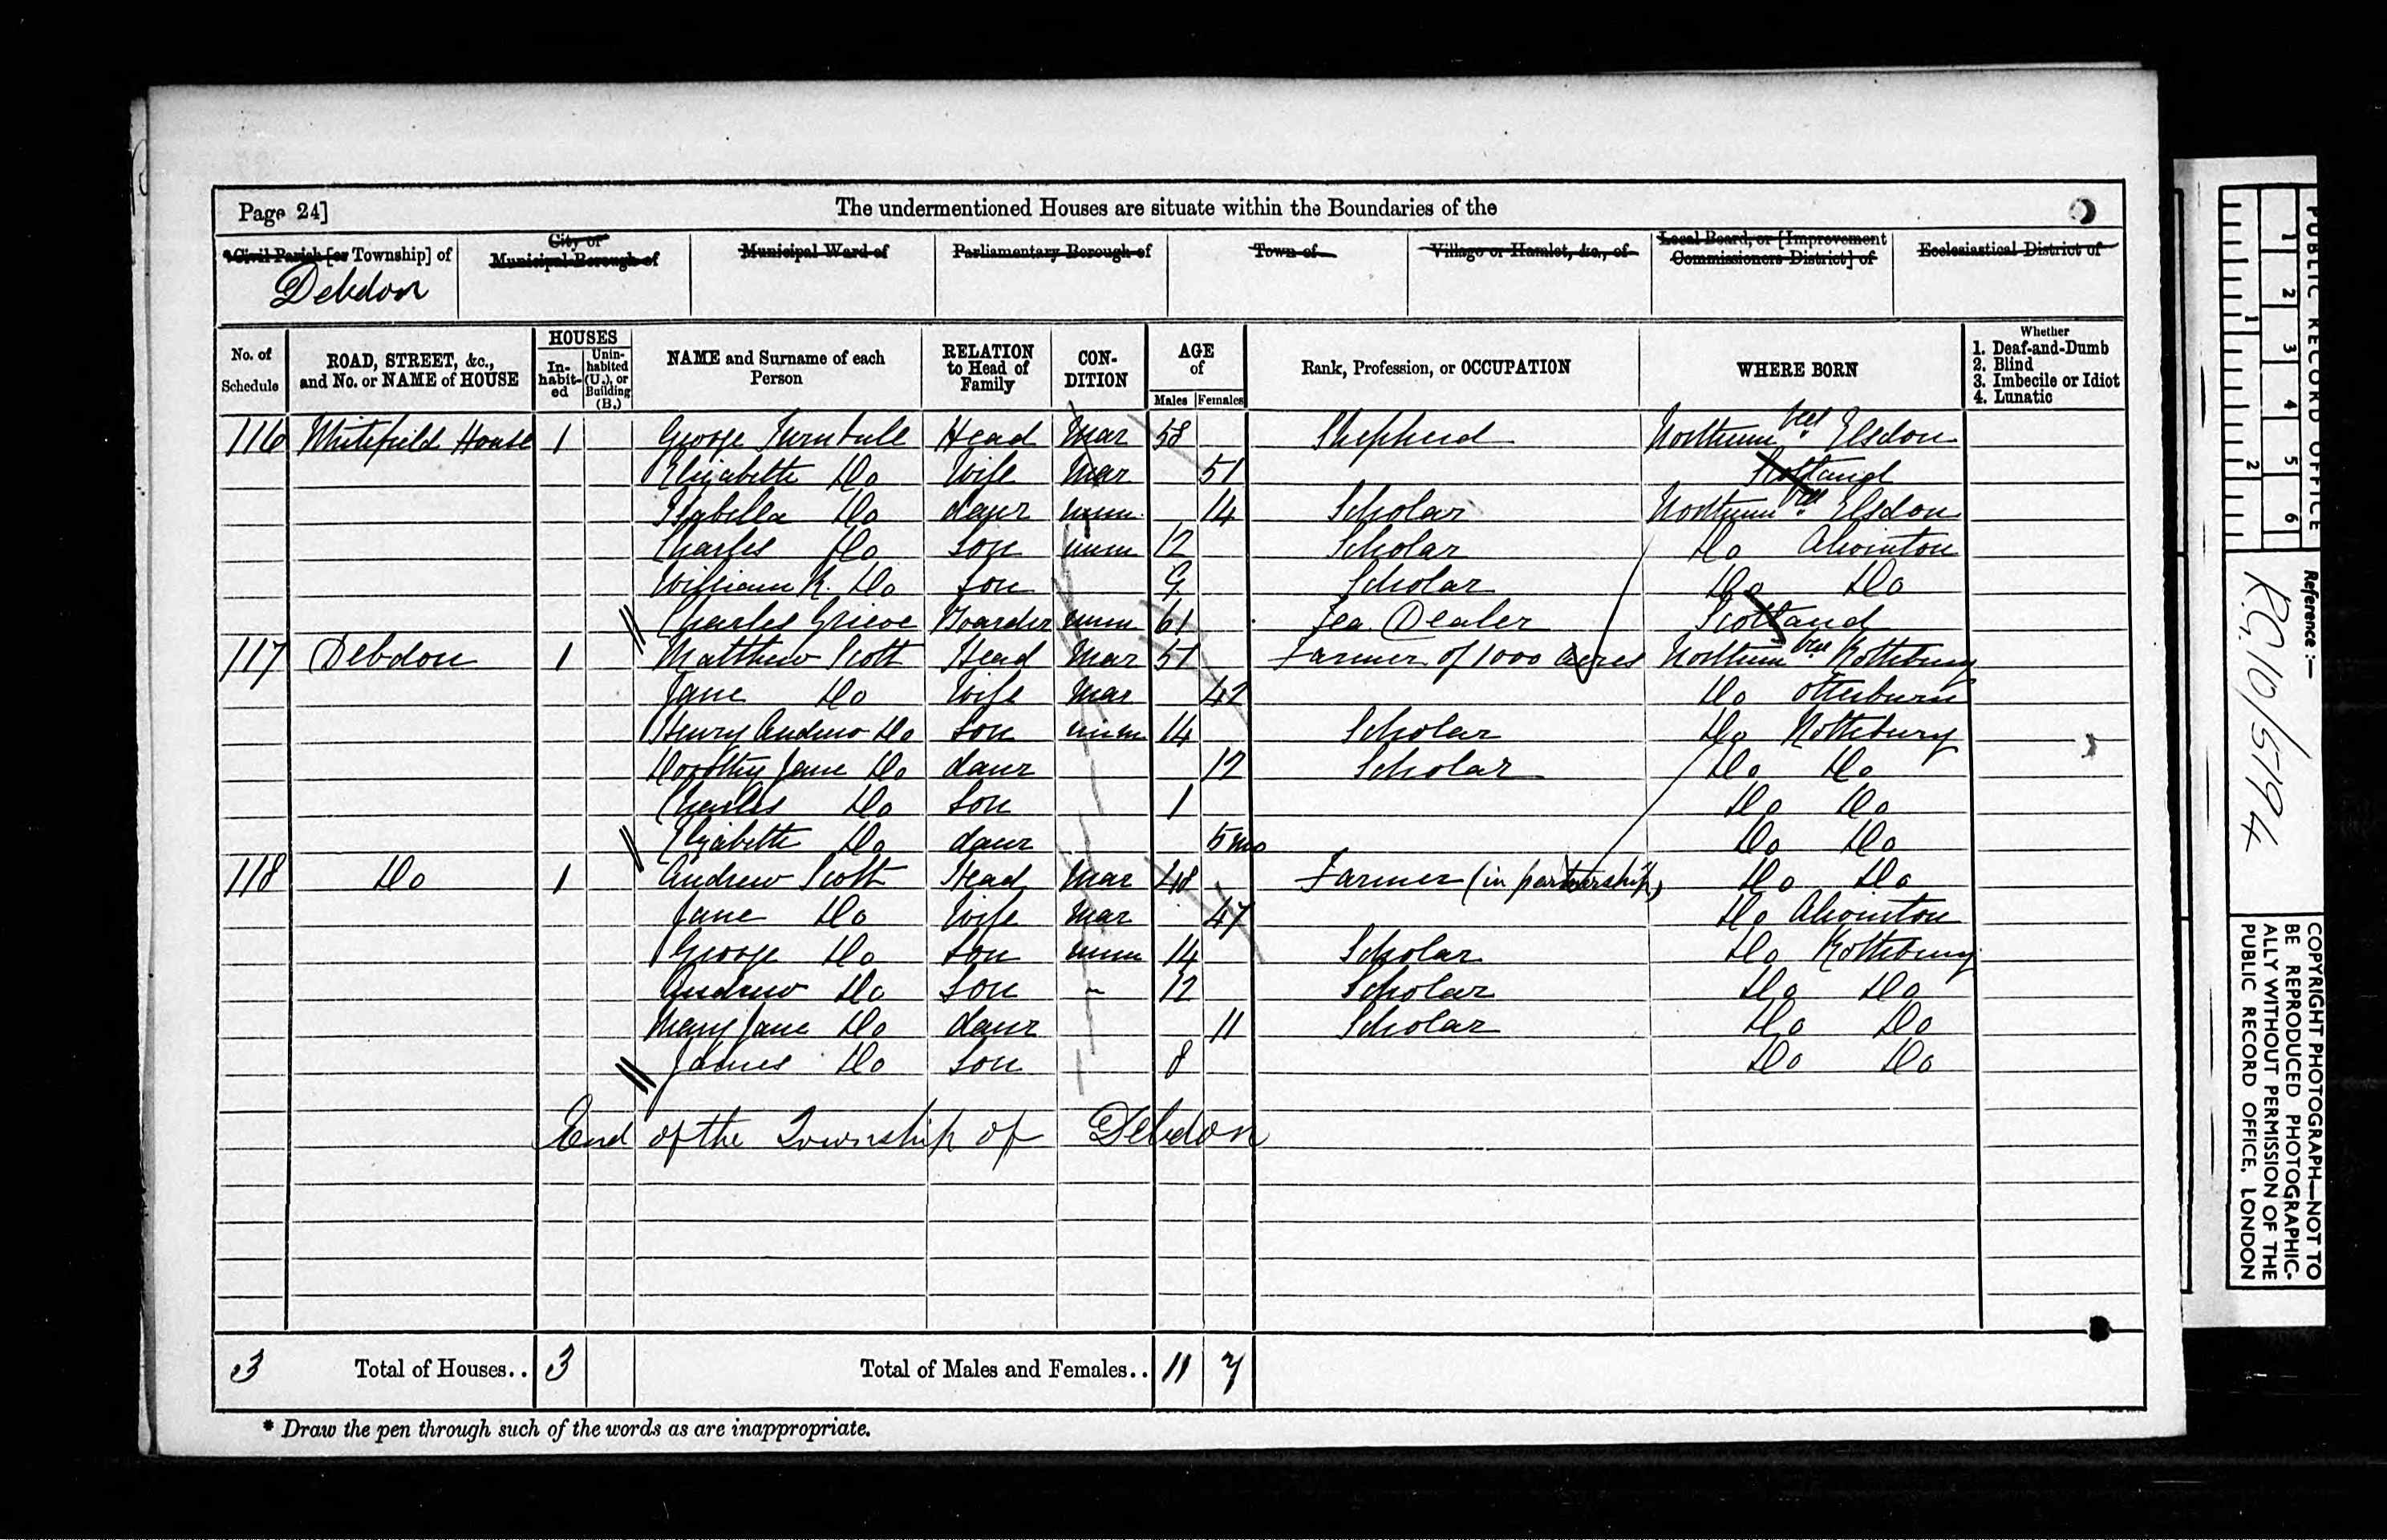 Page 24]
The undermentioned Houses are situate within the Boundaries of the
*Civil Parish [or Township] of
City or Municipal Borough of
Municipal Ward of
Parliamentary Borough of
Town of
Village or Hamlet, &c., of
Local Board, or [Improvement Commissioners District] of
Ecclesiastical District of
Debdon
No. of Schedule
ROAD, STREET, &c., and No. or NAME of HOUSE
HOUSES
In-habit-ed
Unin-habited (U.), or Building (B.)
NAME and Surname of each Person
RELATION to Head of Family
CON-DITION
AGE of
Males
Females
Rank, Profession, or OCCUPATION
WHERE BORN
Whether
1. Deaf-and-Dumb
2. Blind
3. Imbecile or Idiot
4. Lunatic
116 Whitefield House 1 George Turnbull Head Mar 58 Shepherd Northumbld Elsdon
Elizabeth Do Wife Mar 51 Scotland
Isabella Do daur unm 14 Scholar Northumbld Elsdon
Charles Do son unm 12 Scholar Do Alwinton
William R. Do son 9 Scholar Do Do
Charles Grieve Boarder unm 61 Tea Dealer Scotland
117 Debdon 1 Matthew Scott Head Mar 51 Farmer of 1000 acres Northumbld Rothbury
Jane Do Wife Mar 42 Do Otterburn
Henry Andrew Do son unm 14 Scholar Do Rothbury
Dorothy Jane Do daur 12 Scholar Do Do
Charles Do son 1 Do Do
Elizabeth Do daur 5 mo Do Do
118 Do 1 Andrew Scott Head Mar 48 Farmer (in partnership) Do Do
Jane Do Wife Mar 47 Do Alwinton
George Do son unm 14 Scholar Do Rothbury
Andrew Do son - 12 Scholar Do Do
Mary Jane Do daur 11 Scholar Do Do
James Do son 8 Do Do
End of the Township of Debdon
3 Total of Houses.. 3 Total of Males and Females.. 11 7
* Draw the pen through such of the words as are inappropriate.
PUBLIC RECORD OFFICE
1 2 3 4 5 6
1 2
Reference :—
R.G. 10/5194
COPYRIGHT PHOTOGRAPH—NOT TO
BE REPRODUCED PHOTOGRAPHIC-
ALLY WITHOUT PERMISSION OF THE
PUBLIC RECORD OFFICE, LONDON